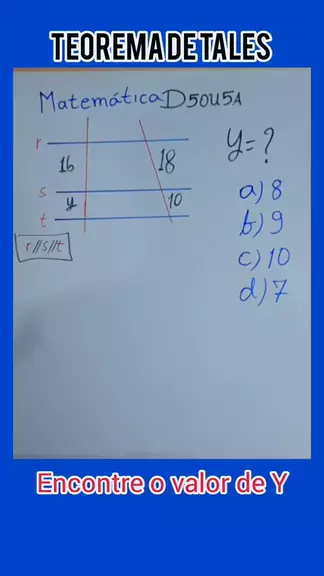 TEOREMA DE TALES
Matemática D50U5A
r
16 18
s
y 10
t
r//s//t
y=?
a) 8
b) 9
c) 10
d) 7
Encontre o valor de Y